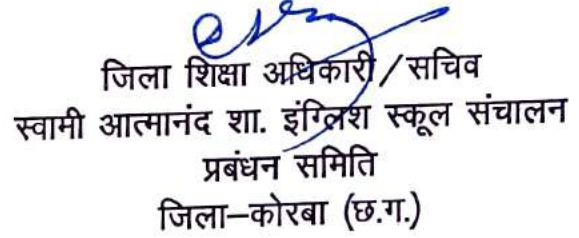 जिला शिक्षा अधिकारी/सचिव
स्वामी आत्मानंद शा. इंग्लिश स्कूल संचालन
प्रबंधन समिति
जिला–कोरबा (छ.ग.)